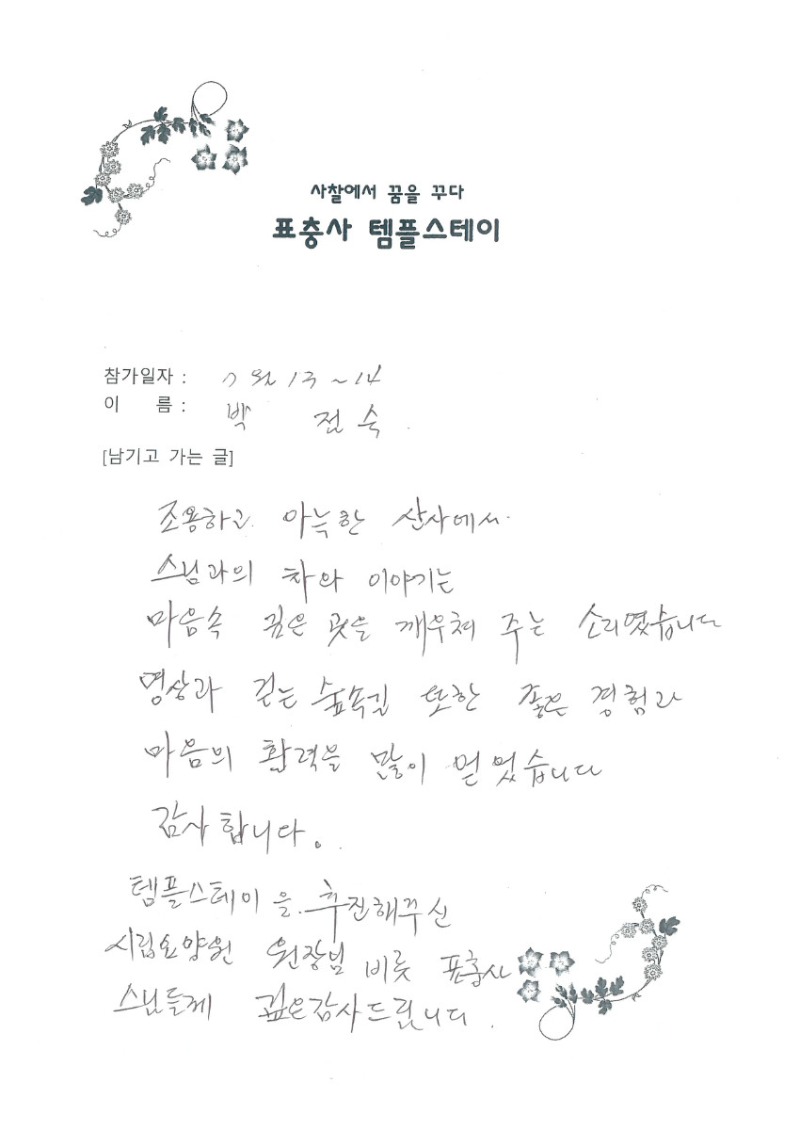 사찰에서 꿈을 꾸다
표충사 템플스테이
참가일자 : 7월 13 ~ 14
이 름 : 박 전숙
[남기고 가는 글]
조용하고 아늑한 산사에서.
스님과의 차와 이야기는
마음속 깊은 곳을 깨우쳐 주는 소리였습니다
명상과 걷는 숲속길 또한 좋은 경험과
마음의 활력을 많이 얻었습니다
감사합니다.
템플스테이을 추진해주신
시립요양원 원장님 비롯 표충사
스님들께 깊은감사드립니다.